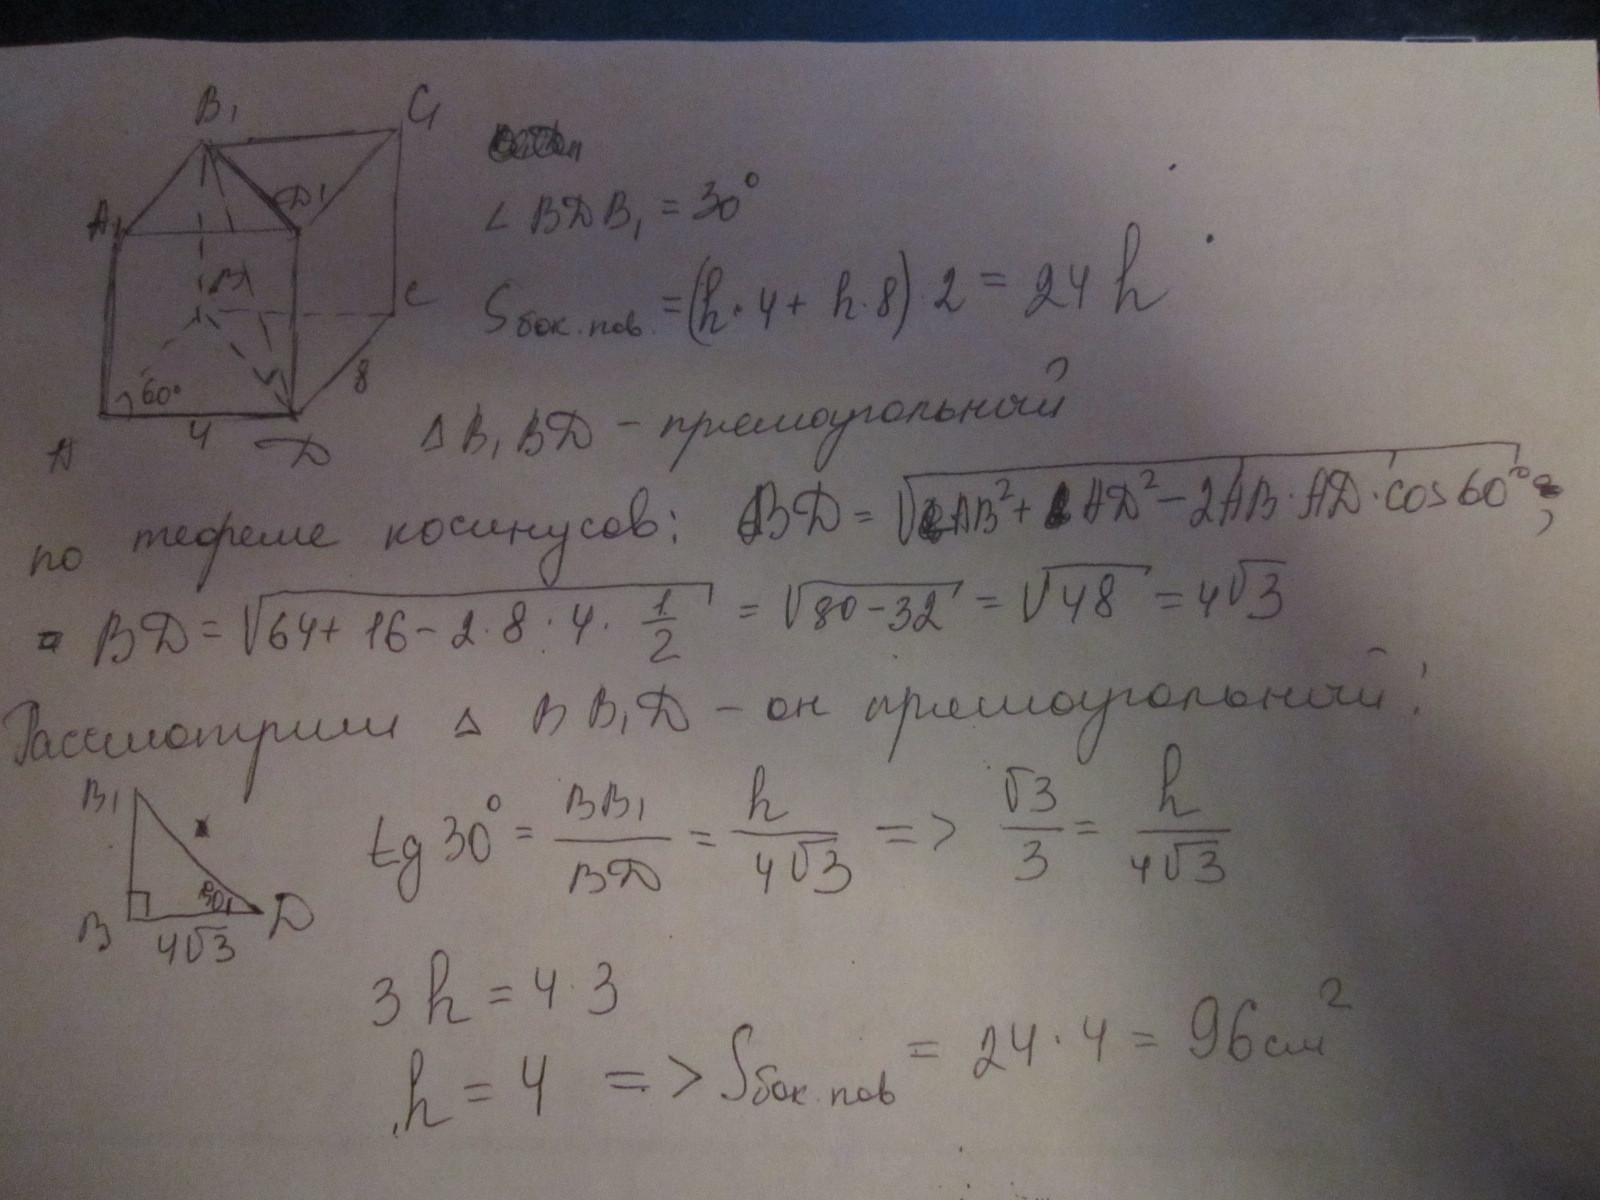 B₁ C₁
A₁ D₁
B C
60° 8
A 4 D
∠BDB₁ = 30°
Sбок.пов. = (h·4 + h·8)·2 = 24h
△B₁BD – прямоугольный
по теореме косинусов: BD = √(AB² + AD² − 2AB·AD·cos60°),
BD = √(64 + 16 − 2·8·4·1/2) = √(80−32) = √48 = 4√3
Рассмотрим △ BB₁D – он прямоугольный!
B₁
30°
B D
4√3
tg30° = BB₁/BD = h/4√3 => √3/3 = h/4√3
3h = 4·3
h = 4 => Sбок.пов = 24·4 = 96см²